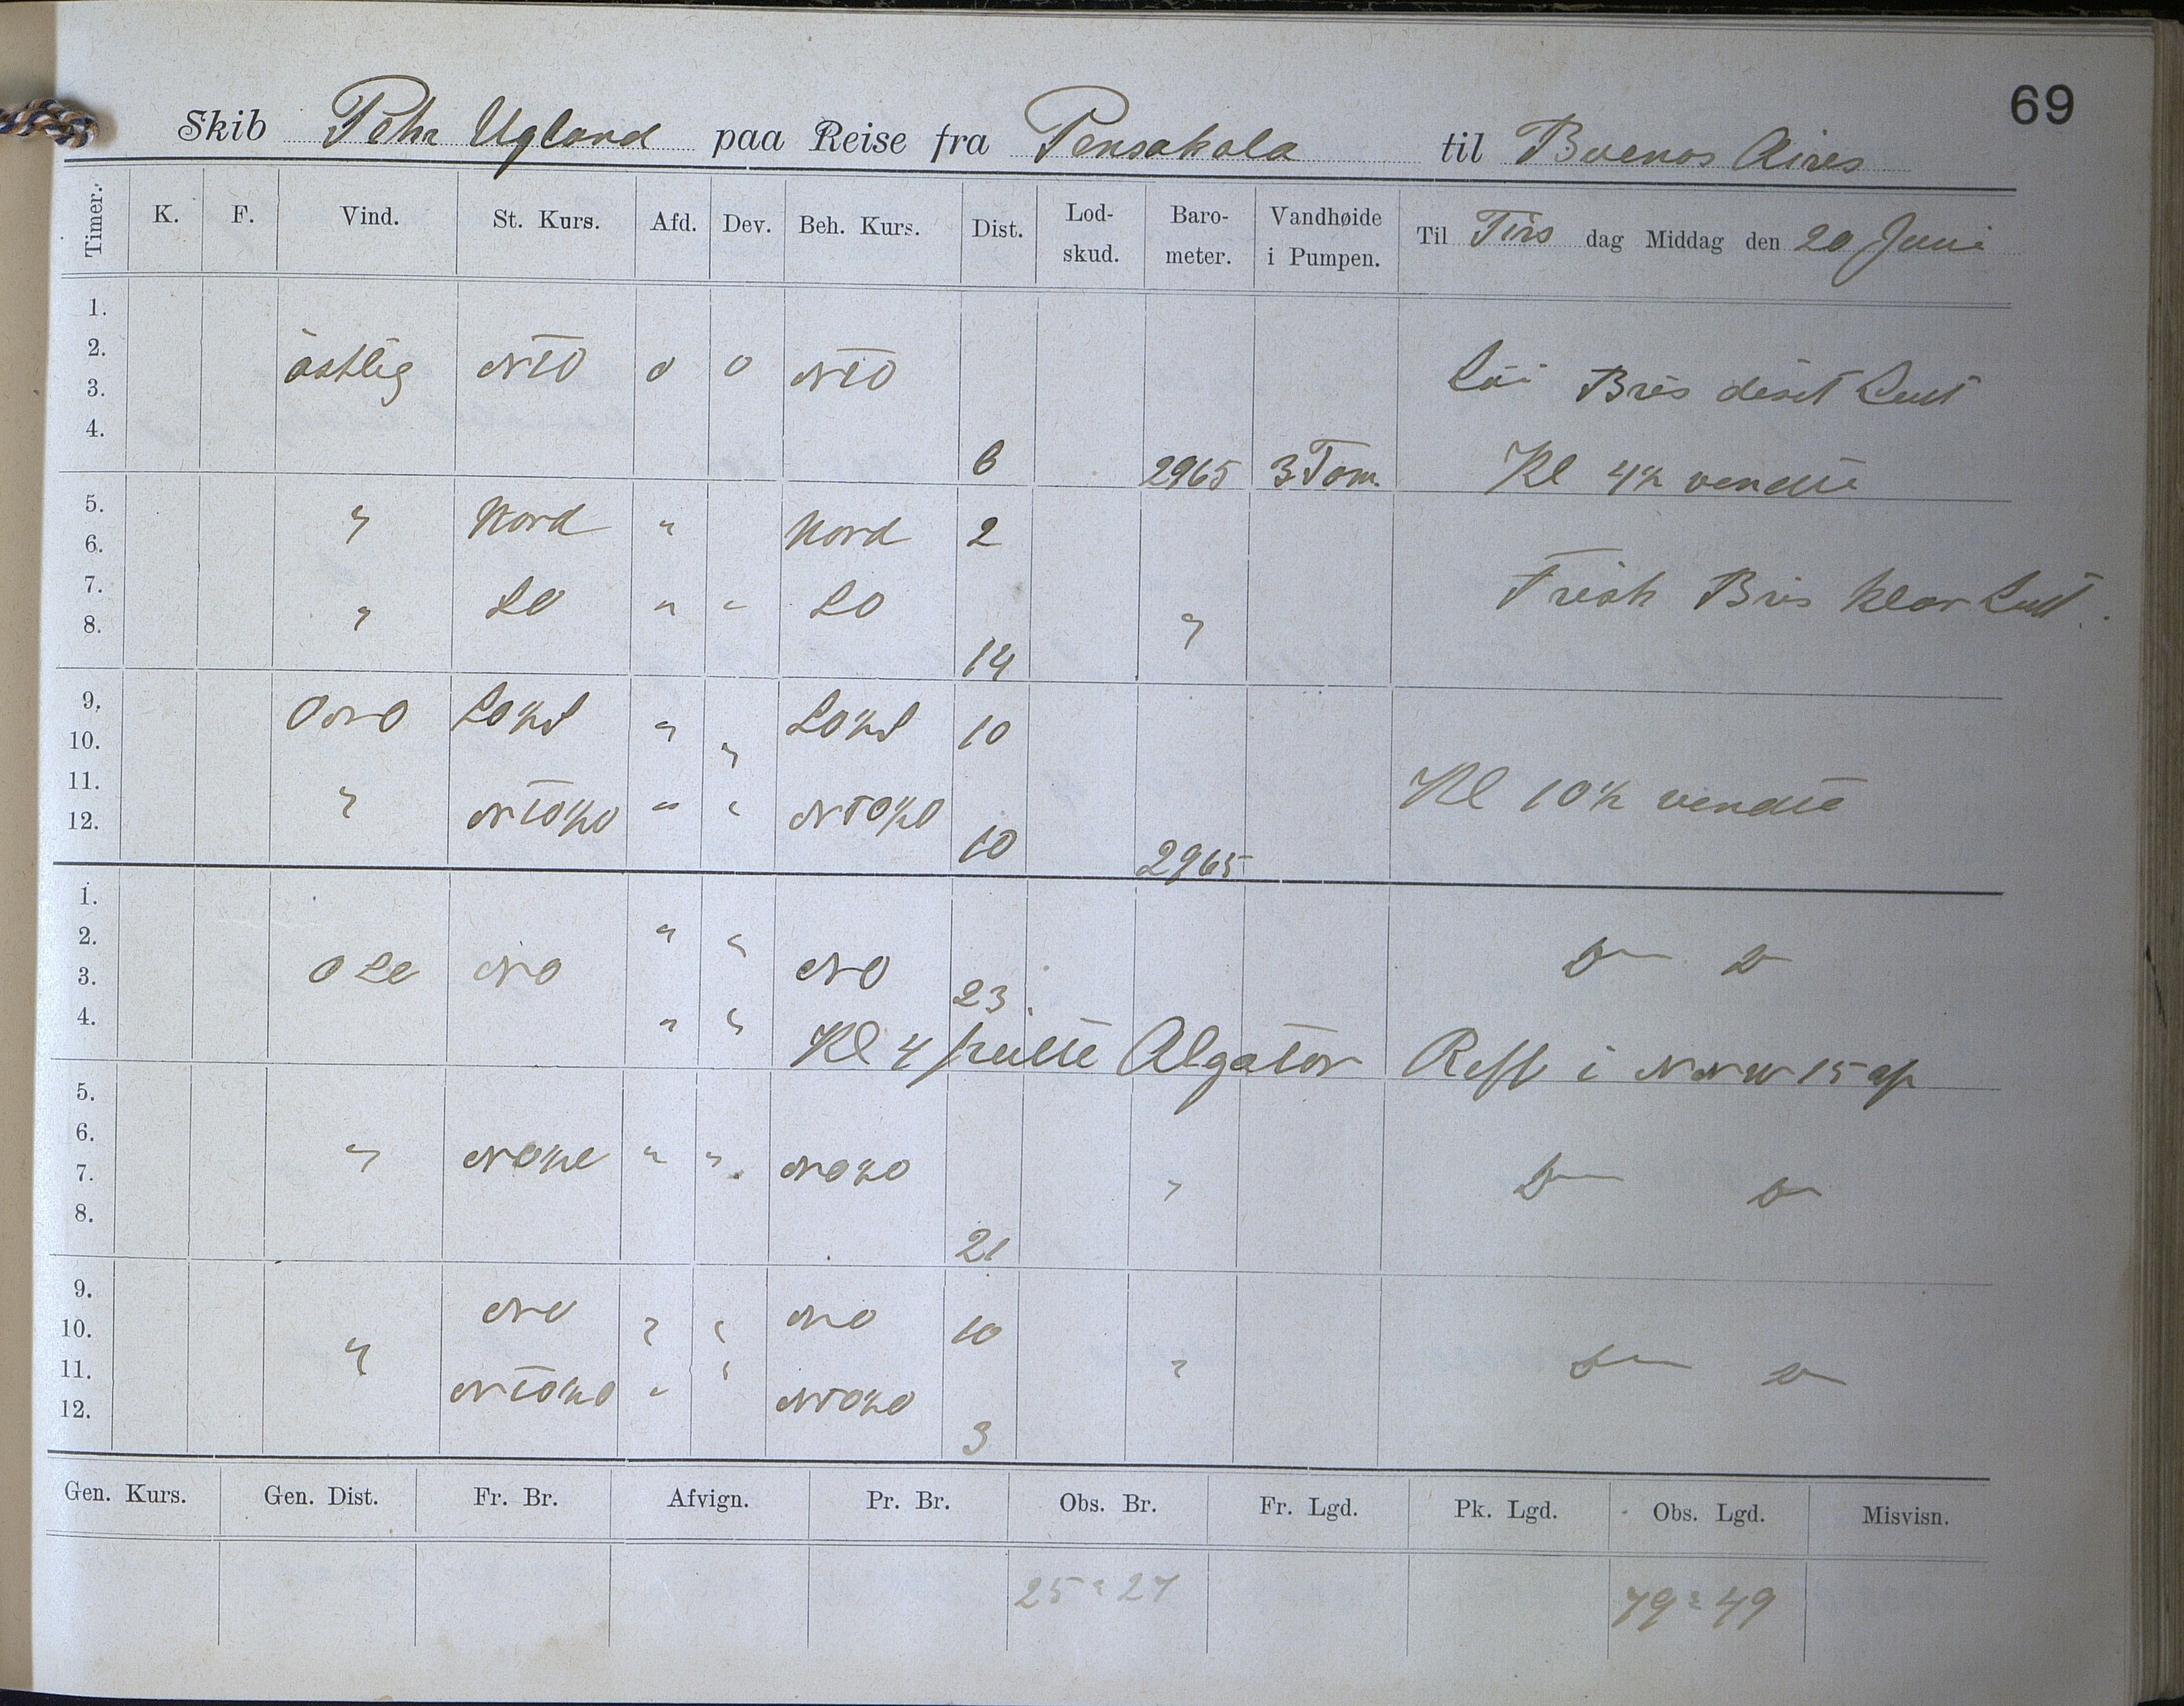 69
Skib Pehr Ugland paa Reise fra Pensakola til Buenos Aires
Timer. K. F. Vind. St. Kurs. Afd. Dev. Beh. Kurs. Dist. Lod- skud. Baro- meter. Vandhøide i Pumpen. Til Tirs dag Middag den 20 Juni
1.
2.
3. östlig NTO 0 0 NTO Löi Bris disit Luft
4. 6 2965 3 Tom. Kl 4½ vendte
5.
6. " Nord " Nord 2
7. Frisk Bris klar Luft.
8. " SO " " SO 14 "
9. ONO SO½S " " SO½S 10
10.
11. Kl 10½ vendte
12. " NTO½O " " NTO½O 10 2965
1.
2. " "
3. OSO NO NO 23 Do Do
4. " " Kl 4 peilte Algator Reff i NNW 15 af
5.
6. " NO½O " " NO½O "
7. Do Do
8. 21
9. NO NO
10. " " " 10
11. " " " Do Do
12. NTO½O " NTO½O 3
Gen. Kurs. Gen. Dist. Fr. Br. Afvign. Pr. Br. Obs. Br. Fr. Lgd. Pk. Lgd. Obs. Lgd. Misvisn.
25 : 27 79 : 49